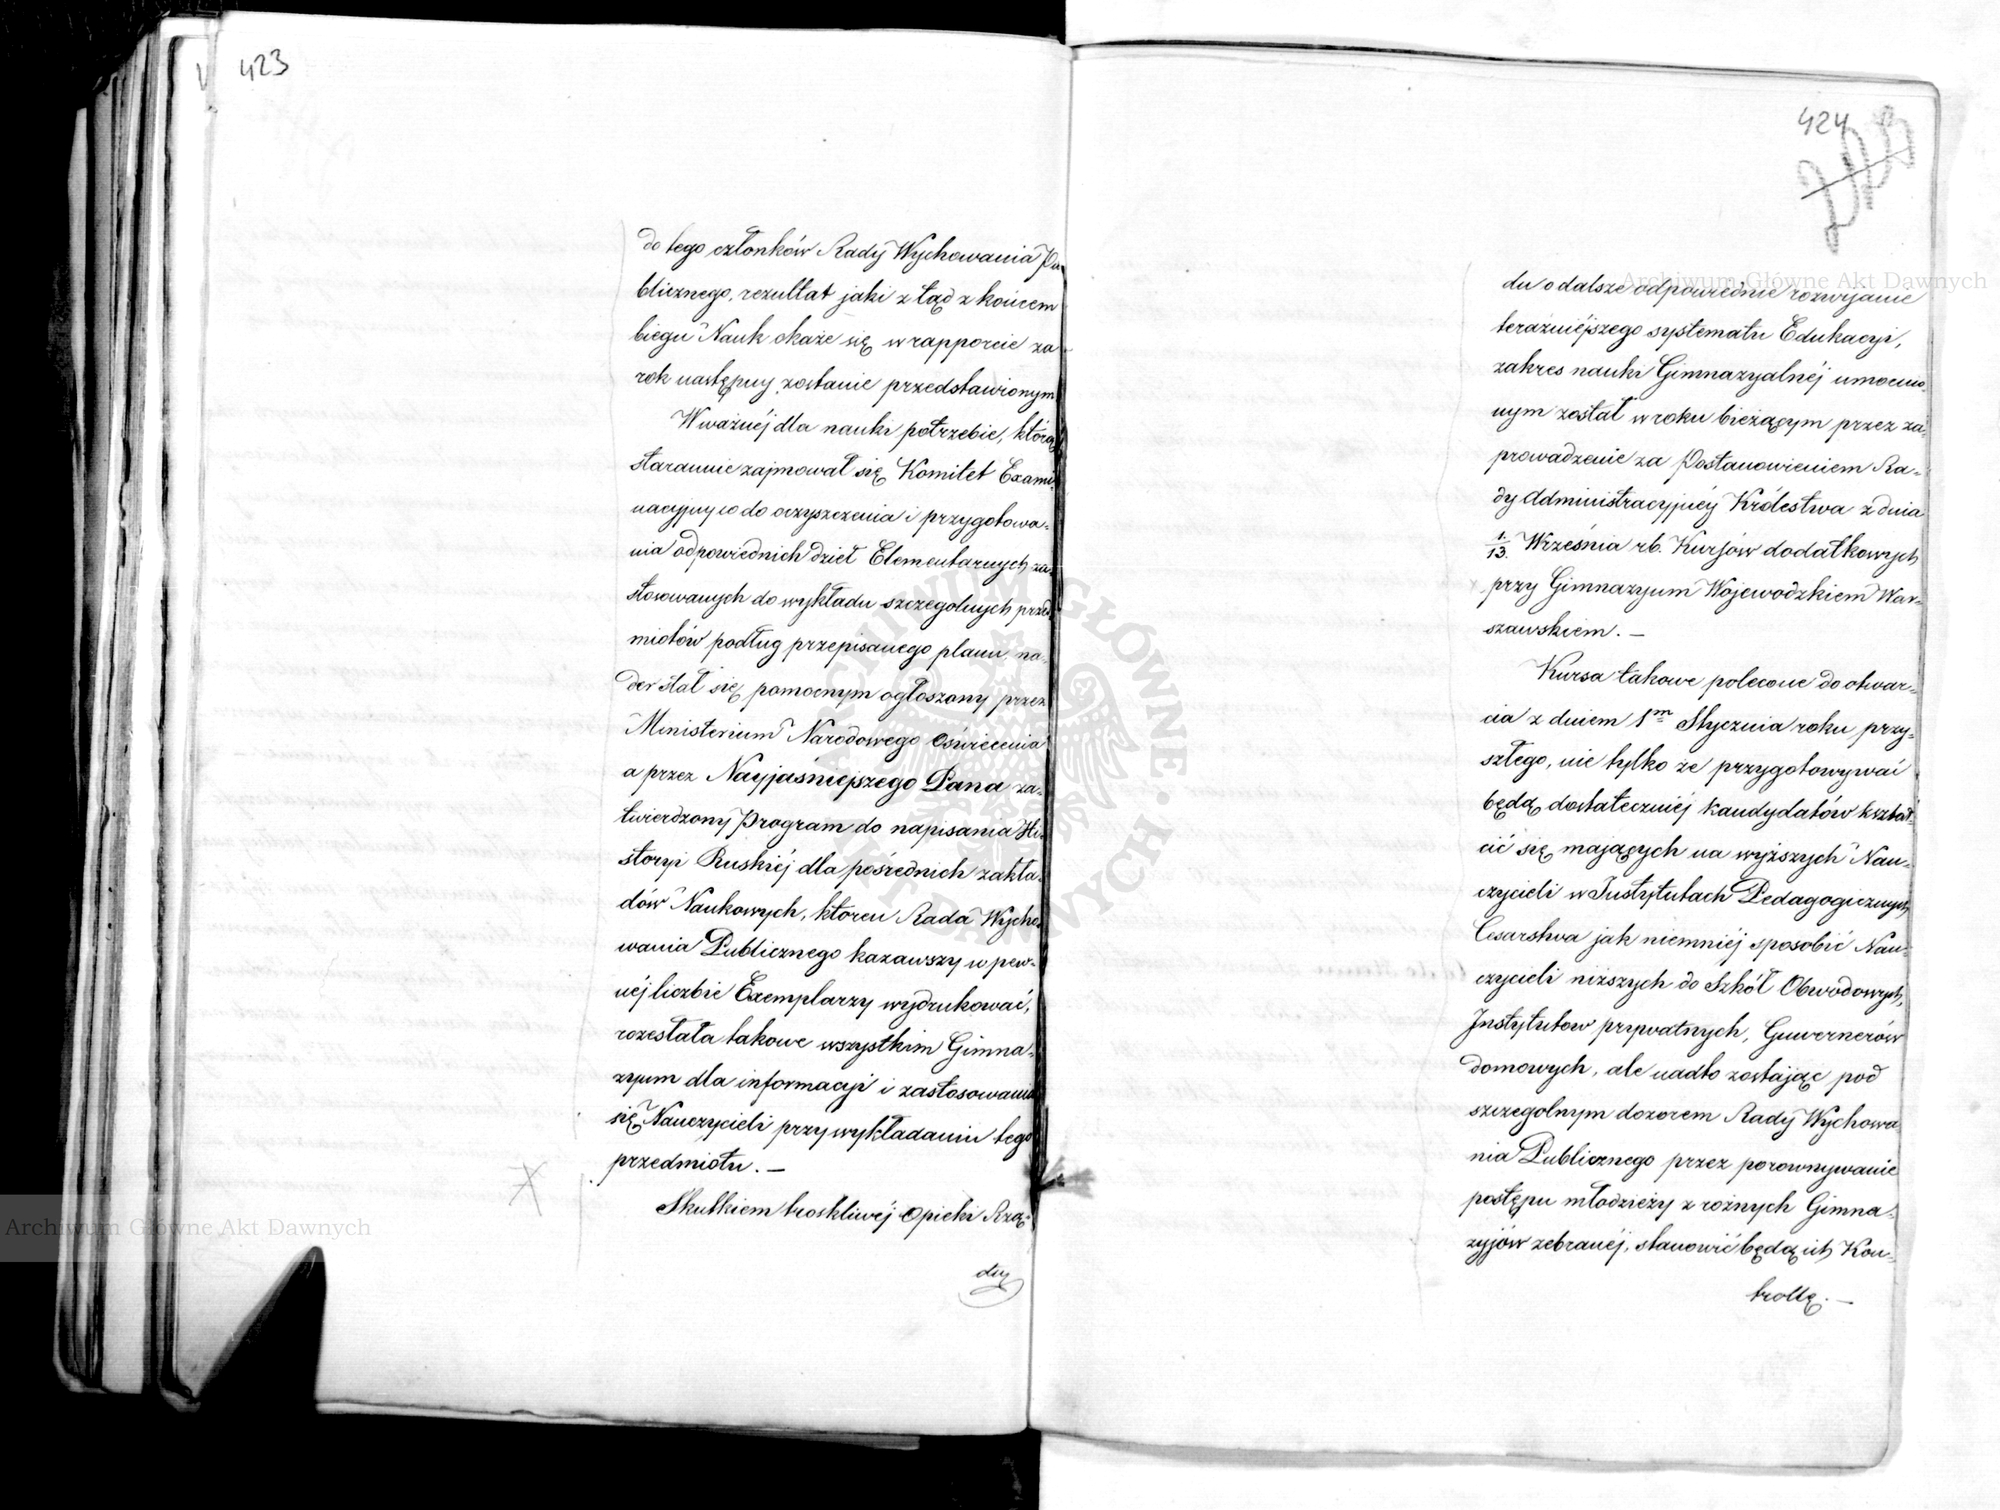 423
do tego członków Rady Wychowania Pu
blicznego, rezultat jaki z tąd z końcem
biegu Nauk okaże się w rapporcie za
rok następny zostanie przedstawionym
W ważnéj dla nauki potrzebie, którą
starannie zajmował się Komitet Exami-
nacyjny co do oczyszczenia i przygotowa-
nia odpowiednich dzieł Elementarnych za-
stosowanych do wykładu szczegolnych przed
miotów podług przepisanego planu, na-
der stał się pomocnym ogłoszony przez
Ministerium Narodowego Oświecenia
a przez Nayjaśniejszego Pana za-
twierdzony Program do napisania Hi-
storyi Ruskiéj dla pośrednich zakła-
dów Naukowych, ktoren Rada Wycho-
wania Publicznego kazawszy w pew-
néj liczbie Exemplarzy wydrukować,
rozesłała takowe wszystkim Gimna-
zyum dla informacyi i zastosowania
się Nauczycieli przy wykładaniu tego
przedmiotu. —
Skutkiem troskliwéj Opieki Rzą-
du
424
du o dalsze odpowiednie rozwijanie
teraźniéjszego systematu Edukacyi,
zakres nauki Gimnazyalnéj umocnio-
nym został w roku bieżącym przez za-
prowadzenie za Postanowieniem Ra-
dy Administracyjnéy Królestwa z dnia
1/13. Września rb. Kursów dodatkowych
przy Gimnazyum Wojewodzkiem War-
szawskiem. —
Kursa takowe polecone do otwar-
cia z dniem 1m Stycznia roku przy-
szłego, nie tylko że przygotowywać
będą dostateczniéj kandydatów kształ-
cić się mających na wyższych Nau-
czycieli w Instytutach Pedagogicznych
Cesarstwa jak niemniéj sposobić Nau-
czycieli niższych do Szkół Obwodowych,
Instytutow prywatnych, Guwernerów
domowych, ale nadto zostając pod
szczegolnym dozorem Rady Wychowa
nia Publicznego przez porownywanie
postępu młodzieży z rożnych Gimna-
zyjów zebranéj, stanowić będą ich Kon-
trollę. —
Archiwum Główne Akt Dawnych
Archiwum Główne Akt Dawnych
ARCHIWUM GŁÓWNE AKT DAWNYCH